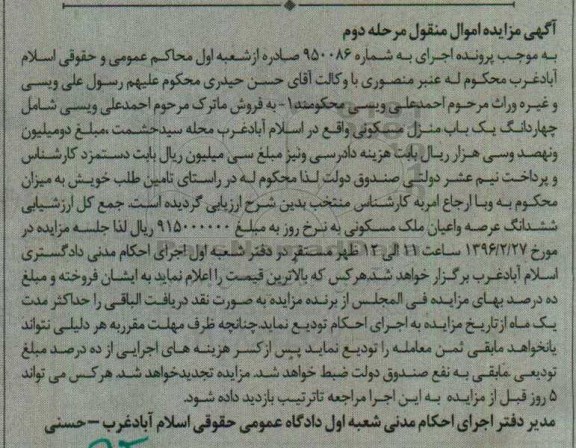 آگهی مزایده اموال منقول مرحله دوم
به موجب پرونده اجرای به شماره ۹۵۰۰۸۶ صادره از شعبه اول محاکم عمومی و حقوقی اسلام
آبادغرب محکوم له عنبر منصوری با وکالت آقای حسن حیدری محکوم علیهم رسول علی ویسی
و غیره وراث مرحوم احمدعلی ویسی محکومند ۱- به فروش ماترک مرحوم احمدعلی ویسی شامل
چهاردانگ یک باب منزل مسکونی واقع در اسلام آبادغرب محله سیدحشمت ،مبلغ دومیلیون
ونهصد وسی هزار ریال بابت هزینه دادرسی ونیز مبلغ سی میلیون ریال بابت دستمزد کارشناس
و پرداخت نیم عشر دولتی صندوق دولت لذا محکوم له در راستای تامین طلب خویش به میزان
محکوم به وبا ارجاع امربه کارشناس منتخب بدین شرح ارزیابی گردیده است. جمع کل ارزشیابی
ششدانگ عرصه واعیان ملک مسکونی به نرخ روز به مبلغ ۹۱۵۰۰۰۰۰۰ ریال لذا جلسه مزایده در
مورخ ۱۳۹۶/۲/۲۷ ساعت ۱۱ الی ۱۲ ظهر مستقر در دفتر شعبه اول اجرای احکام مدنی دادگستری
اسلام آبادغرب برگزار خواهد شد.هرکس که بالاترین قیمت را اعلام نماید به ایشان فروخته و مبلغ
ده درصد بهای مزایده فی المجلس از برنده مزایده به صورت نقد دریافت الباقی را حداکثر مدت
یک ماه ازتاریخ مزایده به اجرای احکام تودیع نماید.چنانچه ظرف مهلت مقرربه هر دلیلی نتواند
یانخواهد مابقی ثمن معامله را تودیع نماید پس ازکسر هزینه های اجرایی از ده درصد مبلغ
تودیعی ،مابقی به نفع صندوق دولت ضبط خواهد شد. مزایده تجدیدخواهد شد. هرکس می تواند
۵ روز قبل از مزایده به این اجرا مراجعه تاترتیب بازدید داده شود.
مدیر دفتر اجرای احکام مدنی شعبه اول دادگاه عمومی حقوقی اسلام آبادغرب – حسنی